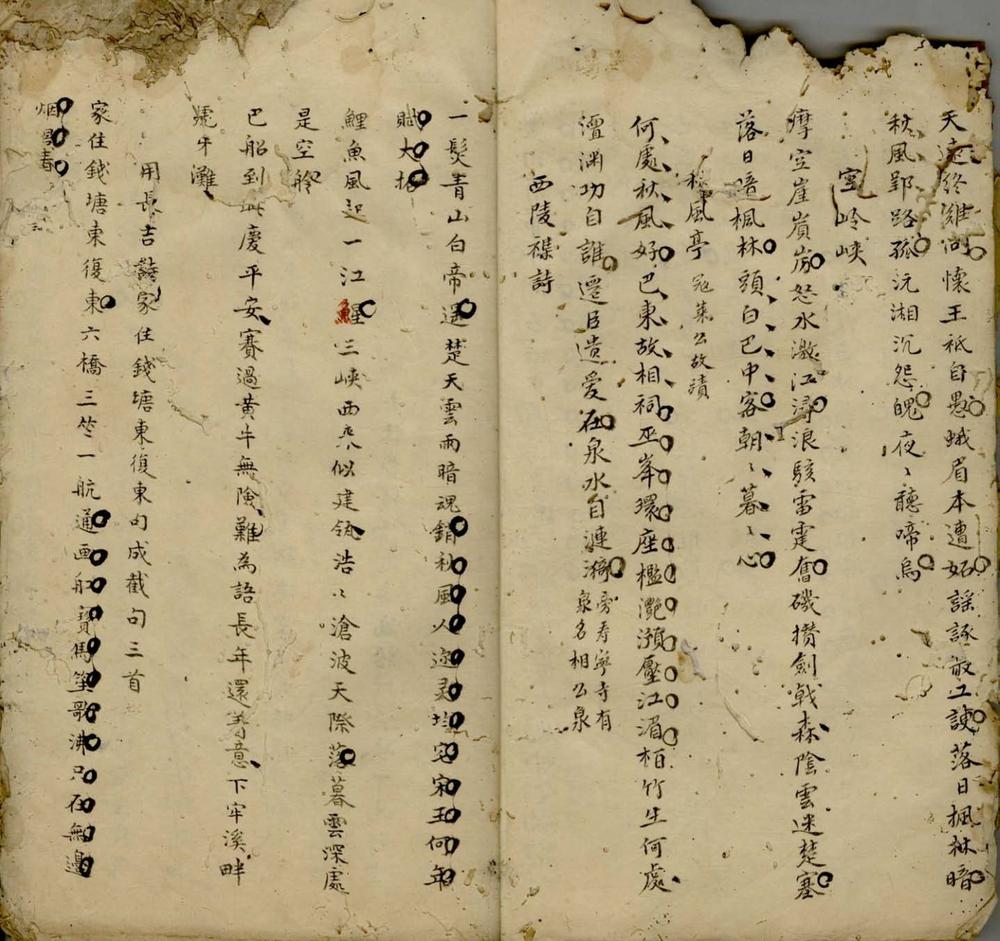 天遠終難問懷王祗自愚蛾眉本遭妬謡諑敢工諛落日楓林暗
秋風郢路孤沅湘沉怨魄夜〻聽啼烏
空岭峽
摩空崖嵿㟁怒水激江潯浪駭雷霆奮磯攢劍戟森陰雲迷楚塞
落日暗楓林頭白巴中客朝〻暮〻心
秋風亭 冦萊公故蹟
何處秋風好巴東故相祠巫峯環座檻灔澦壓江湄栢竹生何處
澶渊功自誰遷臣遺愛在泉水自漣漪 旁有寧寺有
泉名相公泉
西陵襍詩
一髮青山白帝遥楚天雲雨暗魂銷秋風人迹灵均宅宋玉何年
賦大招
鯉魚風起一江鯹三峽西来似建瓴浩〻滄波天際落暮雲深處
是空舲
巴船到此慶平安賽過黄牛無険難為語長年還著意下牢溪畔
㹆牙灘
用長吉詩家住錢塘東復東句成截句三首
家住錢塘東復東六橋三竺一航通画船寶馬笙歌沸只在無邊
烟景春